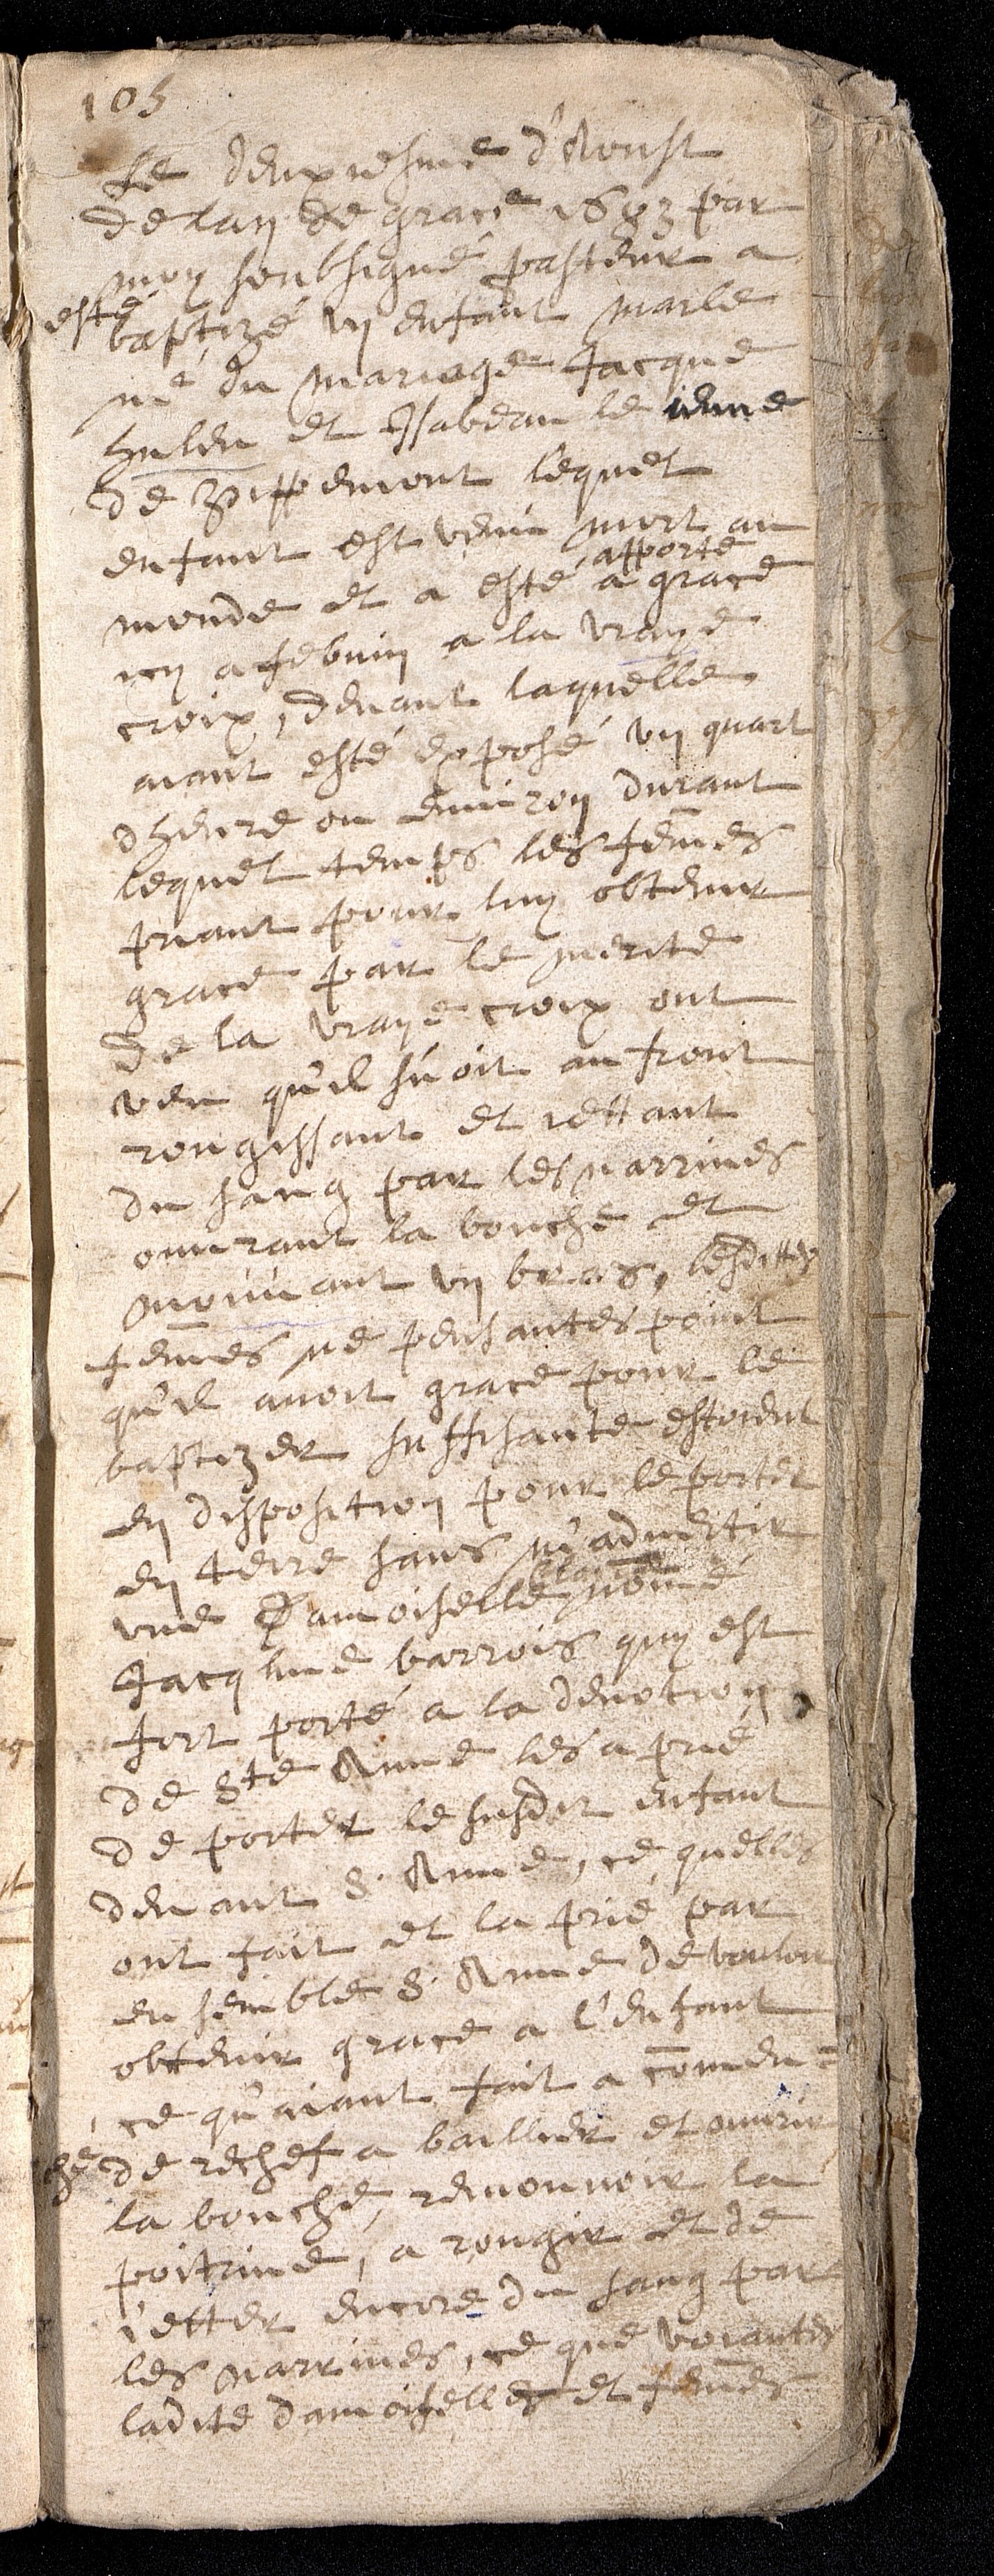 105
Le deuxiesme d'Aoust
de lan de grace 1683 par
moy soubsigné pasteur a
esté baptizé un enfant marle
né du mariage Jacque
hulin et Isabeau le ieune
de Buffemont lequel
enfant est venu mort au
monde et a esté apporté a grace
icy a febvin a la vraye
croix, devant laquelle
aiant esté exposé un quart
dheure ou environ durant
lequel temps les fem̄es
priant pour luy obtenir
grace par le merite
de la vraye croix ont
veu qu'il súoit au front
rougissant et iettant
du sang par les narrines
ouurant la bouche et
mouuant un bras, lesdittes
fem̄es ne pensantes point
qu'il auoit grace pour le
baptizer suffisante estoient
en disposition pour le porter
en terre sans m'aduertir
une Damoiselle nom̄é
Jacqline barrois quy est
fort porté a la deuotion
de Ste Anne les a prié
de porter le susdit enfant
deuant S. Anne, ce quelles
ont fait et la prié par
ensemble S. Anne de vouloir
obtenir grace a l'enfant
ce qu'aiant fait a com̄en=
cé de rechef a baillier et ouurir
la bouche, remouuoir la
poitrine, a rougir et de
ietter encore du sang par
les narrines, ce que voiantes
ladite damoiselles et fem̄es